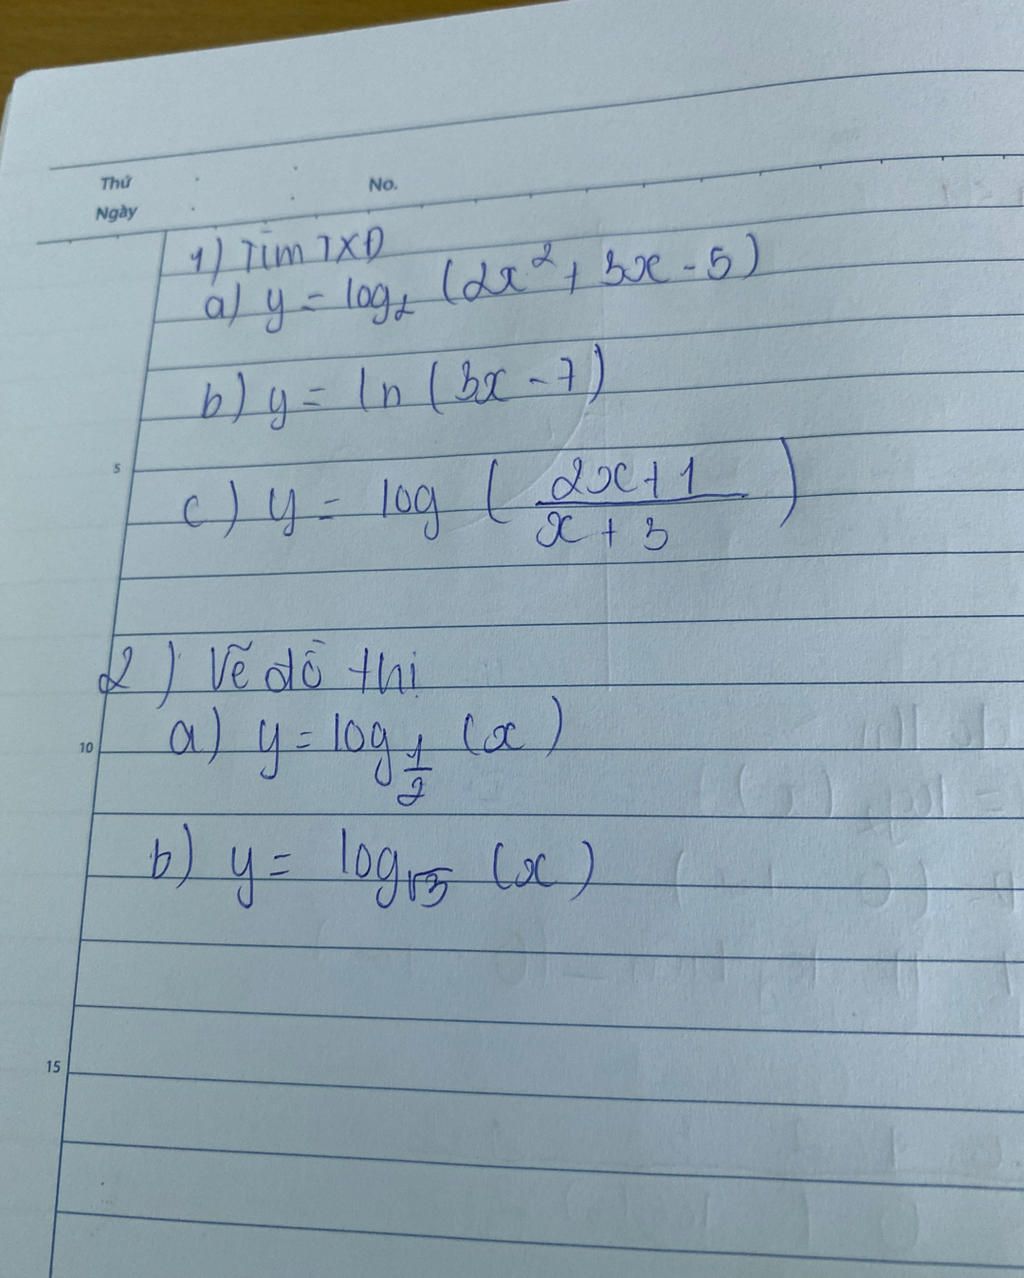 Thứ
Ngày
No.
1) Tìm TXD
a) y = log₂ (2x² + 3x - 5)
b) y = ln (3x - 7)
5
c) y = log ( (2x+1)/(x+3) )
2) Vẽ đồ thị
10
a) y = log_{1/2} (x)
b) y = log_{√3} (x)
15